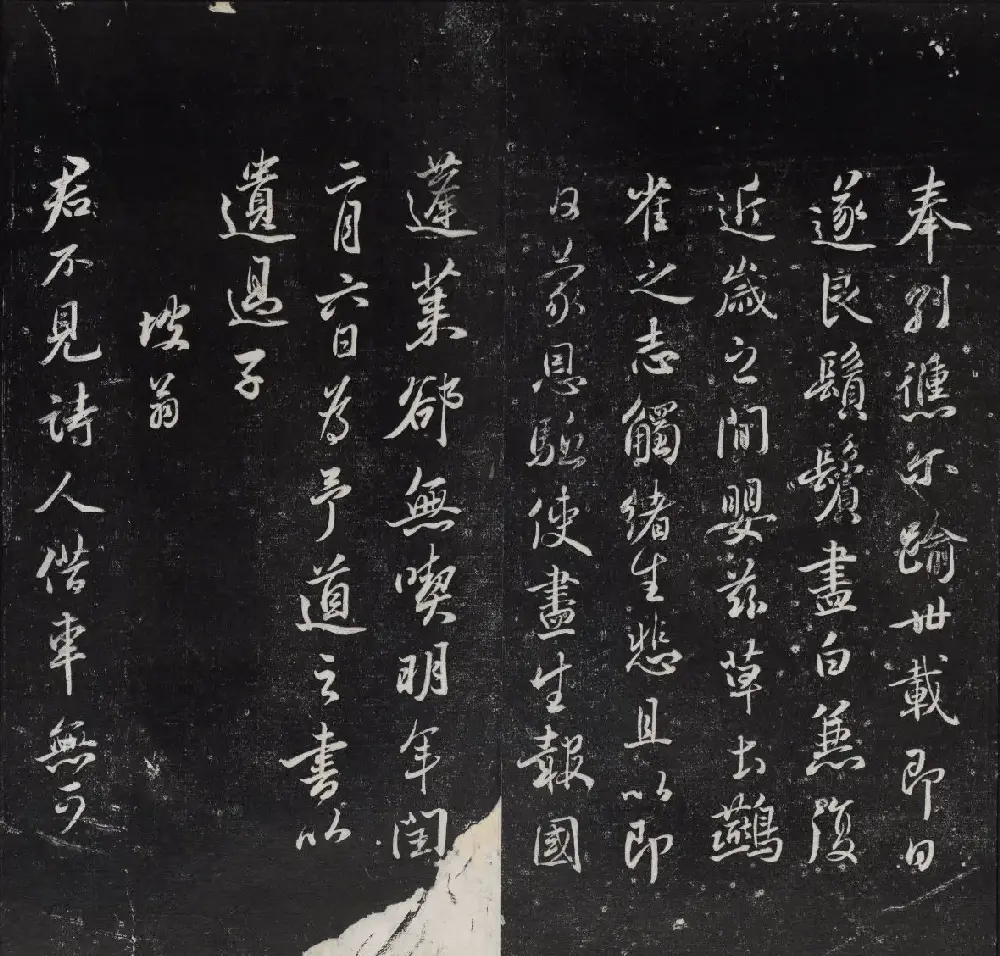 奉別儵尔踰卅載即日
遂良鬚鬢盡白兼復
近歲之間嬰茲草土鷰
雀之志觸緒生悲且以即
日蒙恩駈使盡生報國
蓬葉卻無喫明年閏
二月六日為予道之書以
遺過子
坡翁
君不見詩人借車無可